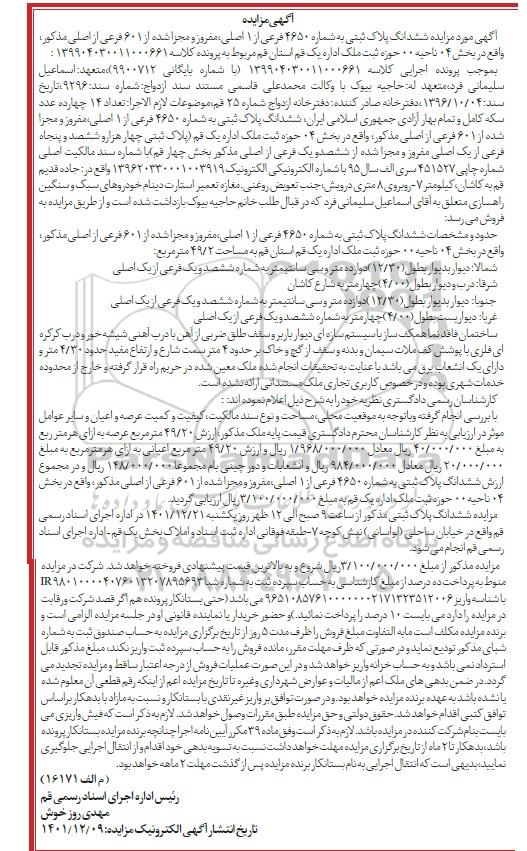 آگهی مزایده
آگهی مورد مزایده ششدانگ پلاک ثبتی به شماره ۴۶۵۰ فرعی از ۱ اصلی، مفروز و مجزا شده از ۶۰۱ فرعی از اصلی مذکور،
واقع در بخش ۰۴ ناحیه ۰۰ حوزه ثبت ملک اداره یک قم استان قم مربوط به پرونده کلاسه ۱۳۹۹۰۴۰۳۰۰۱۱۰۰۰۶۶۱ :
بموجب پرونده اجرایی کلاسه ۱۳۹۹۰۴۰۳۰۰۱۱۰۰۰۶۶۱ (با شماره بایگانی ۹۹۰۰۷۱۲)،متعهد:اسماعیل
سلیمانی فرد،متعهد له:حاجیه بیوک با وکالت محمدعلی قاسمی مستند سند ازدواج:شماره سند:۹۲۹۶،تاریخ
سند:۱۳۹۶/۱۰/۰۴،دفترخانه صادر کننده:دفترخانه ازدواج شماره ۲۵ قم،موضوعات لازم الاجرا:تعداد ۱۴ چهارده عدد
سکه کامل و تمام بهار آزادی جمهوری اسلامی ایران، ششدانگ پلاک ثبتی به شماره ۴۶۵۰ فرعی از ۱ اصلی،مفروز و مجزا
شده از ۶۰۱ فرعی از اصلی مذکور، واقع در بخش ۰۴ حوزه ثبت ملک اداره یک قم (پلاک ثبتی چهار هزار و ششصد و پنجاه
فرعی از یک اصلی مفروز و مجزا شده از ششصد و یک فرعی از اصلی مذکور بخش چهار قم)با شماره سند مالکیت اصلی
شماره چاپی ۴۵۱۵۲۷ سری الف سال ۹۵ با شماره الکترونیکی الکترونیک ۱۳۹۶۲۰۳۳۰۰۰۱۰۰۳۹۱۹ واقع در: جاده قدیم
قم به کاشان،کیلومتر ۷-روبروی ۸ متری درویش-جنب تعویض روغنی،مغازه تعمیر استارت دینام خودروهای سبک و سنگین
راهسازی متعلق به آقای اسماعیل سلیمانی فرد که در قبال طلب خانم حاجیه بیوک بازداشت شده است و از طریق مزایده به
فروش می رسد:
حدود و مشخصات ششدانگ پلاک ثبتی به شماره ۴۶۵۰ فرعی از ۱ اصلی،مفروز و مجزا شده از ۶۰۱ فرعی از اصلی مذکور،
واقع در بخش ۰۴ ناحیه ۰۰ حوزه ثبت ملک اداره یک قم استان قم به مساحت ۴۹/۲ متر مربع:
شمالا: دیوار بدیوار بطول (۱۲/۳۰)دوازده متر و سی سانتیمتر به شماره ششصد و یک فرعی از یک اصلی
شرقا: درب و دیوار بطول (۴/۰۰)چهار متر به شارع کاشان
جنوبا: دیوار بدیوار بطول (۱۲/۳۰)دوازده متر و سی سانتیمتر به شماره ششصد و یک فرعی از یک اصلی
غربا: دیواریست بطول (۴/۰۰)چهار متر به شماره ششصد و یک فرعی از یک اصلی
ساختمان فاقد نما همکف ساز با سیستم سازه ای دیوار باربر و سقف طلق ضربی از آهن با درب آهنی شیشه خور و درب کرکره
ای فلزی با پوشش کف ملات سیمان و بدنه و سقف از گچ و خاک بر حدود ۴ متر سمت شارع و ارتفاع مفید حدود ۴/۳۰ متر و
دارای یک انشعاب برق می باشد با عنایت به تحقیقات انجام شده ملک معین شده در حریم راه قرار گرفته و خارج از محدوده
خدمات شهری بوده و در خصوص کاربری تجاری ملک مستنداتی ارائه نشده است.
کارشناسان رسمی دادگستری نظریه خود را به شرح ذیل اعلام نموده اند: :
با بررسی انجام گرفته و باتوجه به موقعیت محلی،مساحت و نوع سند مالکیت، کیفیت و کمیت عرصه و اعیان و سایر عوامل
موثر در ارزیابی به نظر کارشناسان محترم دادگستری قیمت پایه ملک مذکور، ارزش ۴۹/۲۰ متر مربع عرصه به ازای هر متر ربع
به مبلغ ۴۰/۰۰۰/۰۰۰ ریال معادل ۱/۹۶۸/۰۰۰/۰۰۰ ریال و ارزش ۴۹/۲۰ متر مربع اعیانی به ازای هر متر مربع به مبلغ
۲۰/۰۰۰/۰۰۰ ریال معادل ۹۸۴/۰۰۰/۰۰۰ ریال و انشعابات و دور چینی بام مجموعا ۱۴۸/۰۰۰/۰۰۰ ریال و در مجموع
ارزش ششدانگ پلاک ثبتی به شماره ۴۶۵۰ فرعی از ۱ اصلی،مفروز و مجزا شده از ۶۰۱ فرعی از اصلی مذکور، واقع در بخش
۰۴ ناحیه ۰۰ حوزه ثبت ملک اداره یک قم به مبلغ ۳/۱۰۰/۰۰۰/۰۰۰ ریال ارزیابی گردید.
مزایده ششدانگ پلاک ثبتی مذکور از ساعت ۹ صبح الی ۱۲ ظهر روز یکشنبه ۱۴۰۱/۱۲/۲۱ در اداره اجرای اسناد رسمی
قم واقع در خیابان ساحلی (لواسانی) نبش کوچه ۷-طبقه فوقانی اداره ثبت اسناد و املاک بخش یک قم-اداره اجرای اسناد
رسمی قم انجام می شود.
مزایده مذکور از مبلغ ۳/۱۰۰/۰۰۰/۰۰۰ ریال شروع و به بالاترین قیمت پیشنهادی فروخته خواهد شد. شرکت در مزایده
منوط به پرداخت ده درصد از مبلغ کارشناسی به حساب سپرده ثبت به شماره شبا IR ۹۸۰۱۰۰۰۰۴۰۷۶۰۱۳۲۰۷۸۹۵۶۹۳
با شناسه واریز ۹۶۵۱۰۸۵۷۶۱۰۰۰۰۰۰۰۲۱۷۱۳۲۳۵۱۲۰۰۶ می باشد (حتی بستانکار پرونده هم اگر قصد شرکت و رقابت
در مزایده را دارد می بایست ۱۰ درصد را پرداخت نمائید.)و حضور خریدار یا نماینده قانونی او در جلسه مزایده الزامی است و
برنده مزایده مکلف است مابه التفاوت مبلغ فروش را ظرف مدت ۵ روز از تاریخ برگزاری مزایده به حساب صندوق ثبت به شماره
شبای مذکور تودیع نماید و در صورتی که ظرف مهلت مقرر، مانده فروش را به حساب سپرده ثبت واریز نکند، مبلغ مذکور قابل
استرداد نمی باشد و به حساب خزانه واریز خواهد شد و در این صورت عملیات فروش از درجه اعتبار ساقط و مزایده تجدید می
گردد.در ضمن بدهی های ملک اعم از مالیات و عوارض شهرداری و غیره تا تاریخ مزایده اعم از اینکه رقم قطعی آن معلوم شده
یا نشده باشد به عهده برنده مزایده خواهد بود.و در صورت توافق بر واریز غیر نقدی با بستانکار و نسبت به مازاد با بدهکار بر اساس
توافق کتبی اقدام خواهد شد. حقوق دولتی و حق مزایده طبق مقررات وصول خواهد شد. لازم به ذکر است که فیش واریزی می
بایست بنام شرکت کننده در مزایده باشد. لازم به ذکر است وفق ماده ۳۹ مکرر آیین نامه اجرا چنانچه برنده مزایده بستانکار پرونده
باشد،بدهکار تا ۲ ماه از تاریخ برگزاری مزایده مهلت خواهد داشت نسبت به تسویه بدهی خود اقدام و از انتقال اجرایی جلوگیری
نمایید،بدیهی است که انتقال اجرایی به نام بستانکار برنده مزایده پس از گذشت مهلت ۲ ماهه خواهد بود.
(م الف ۱۶۱۷۱)
رئیس اداره اجرای اسناد رسمی قم
مهدی روز خوش
تاریخ انتشار آگهی الکترونیک مزایده: ۱۴۰۱/۱۲/۰۹